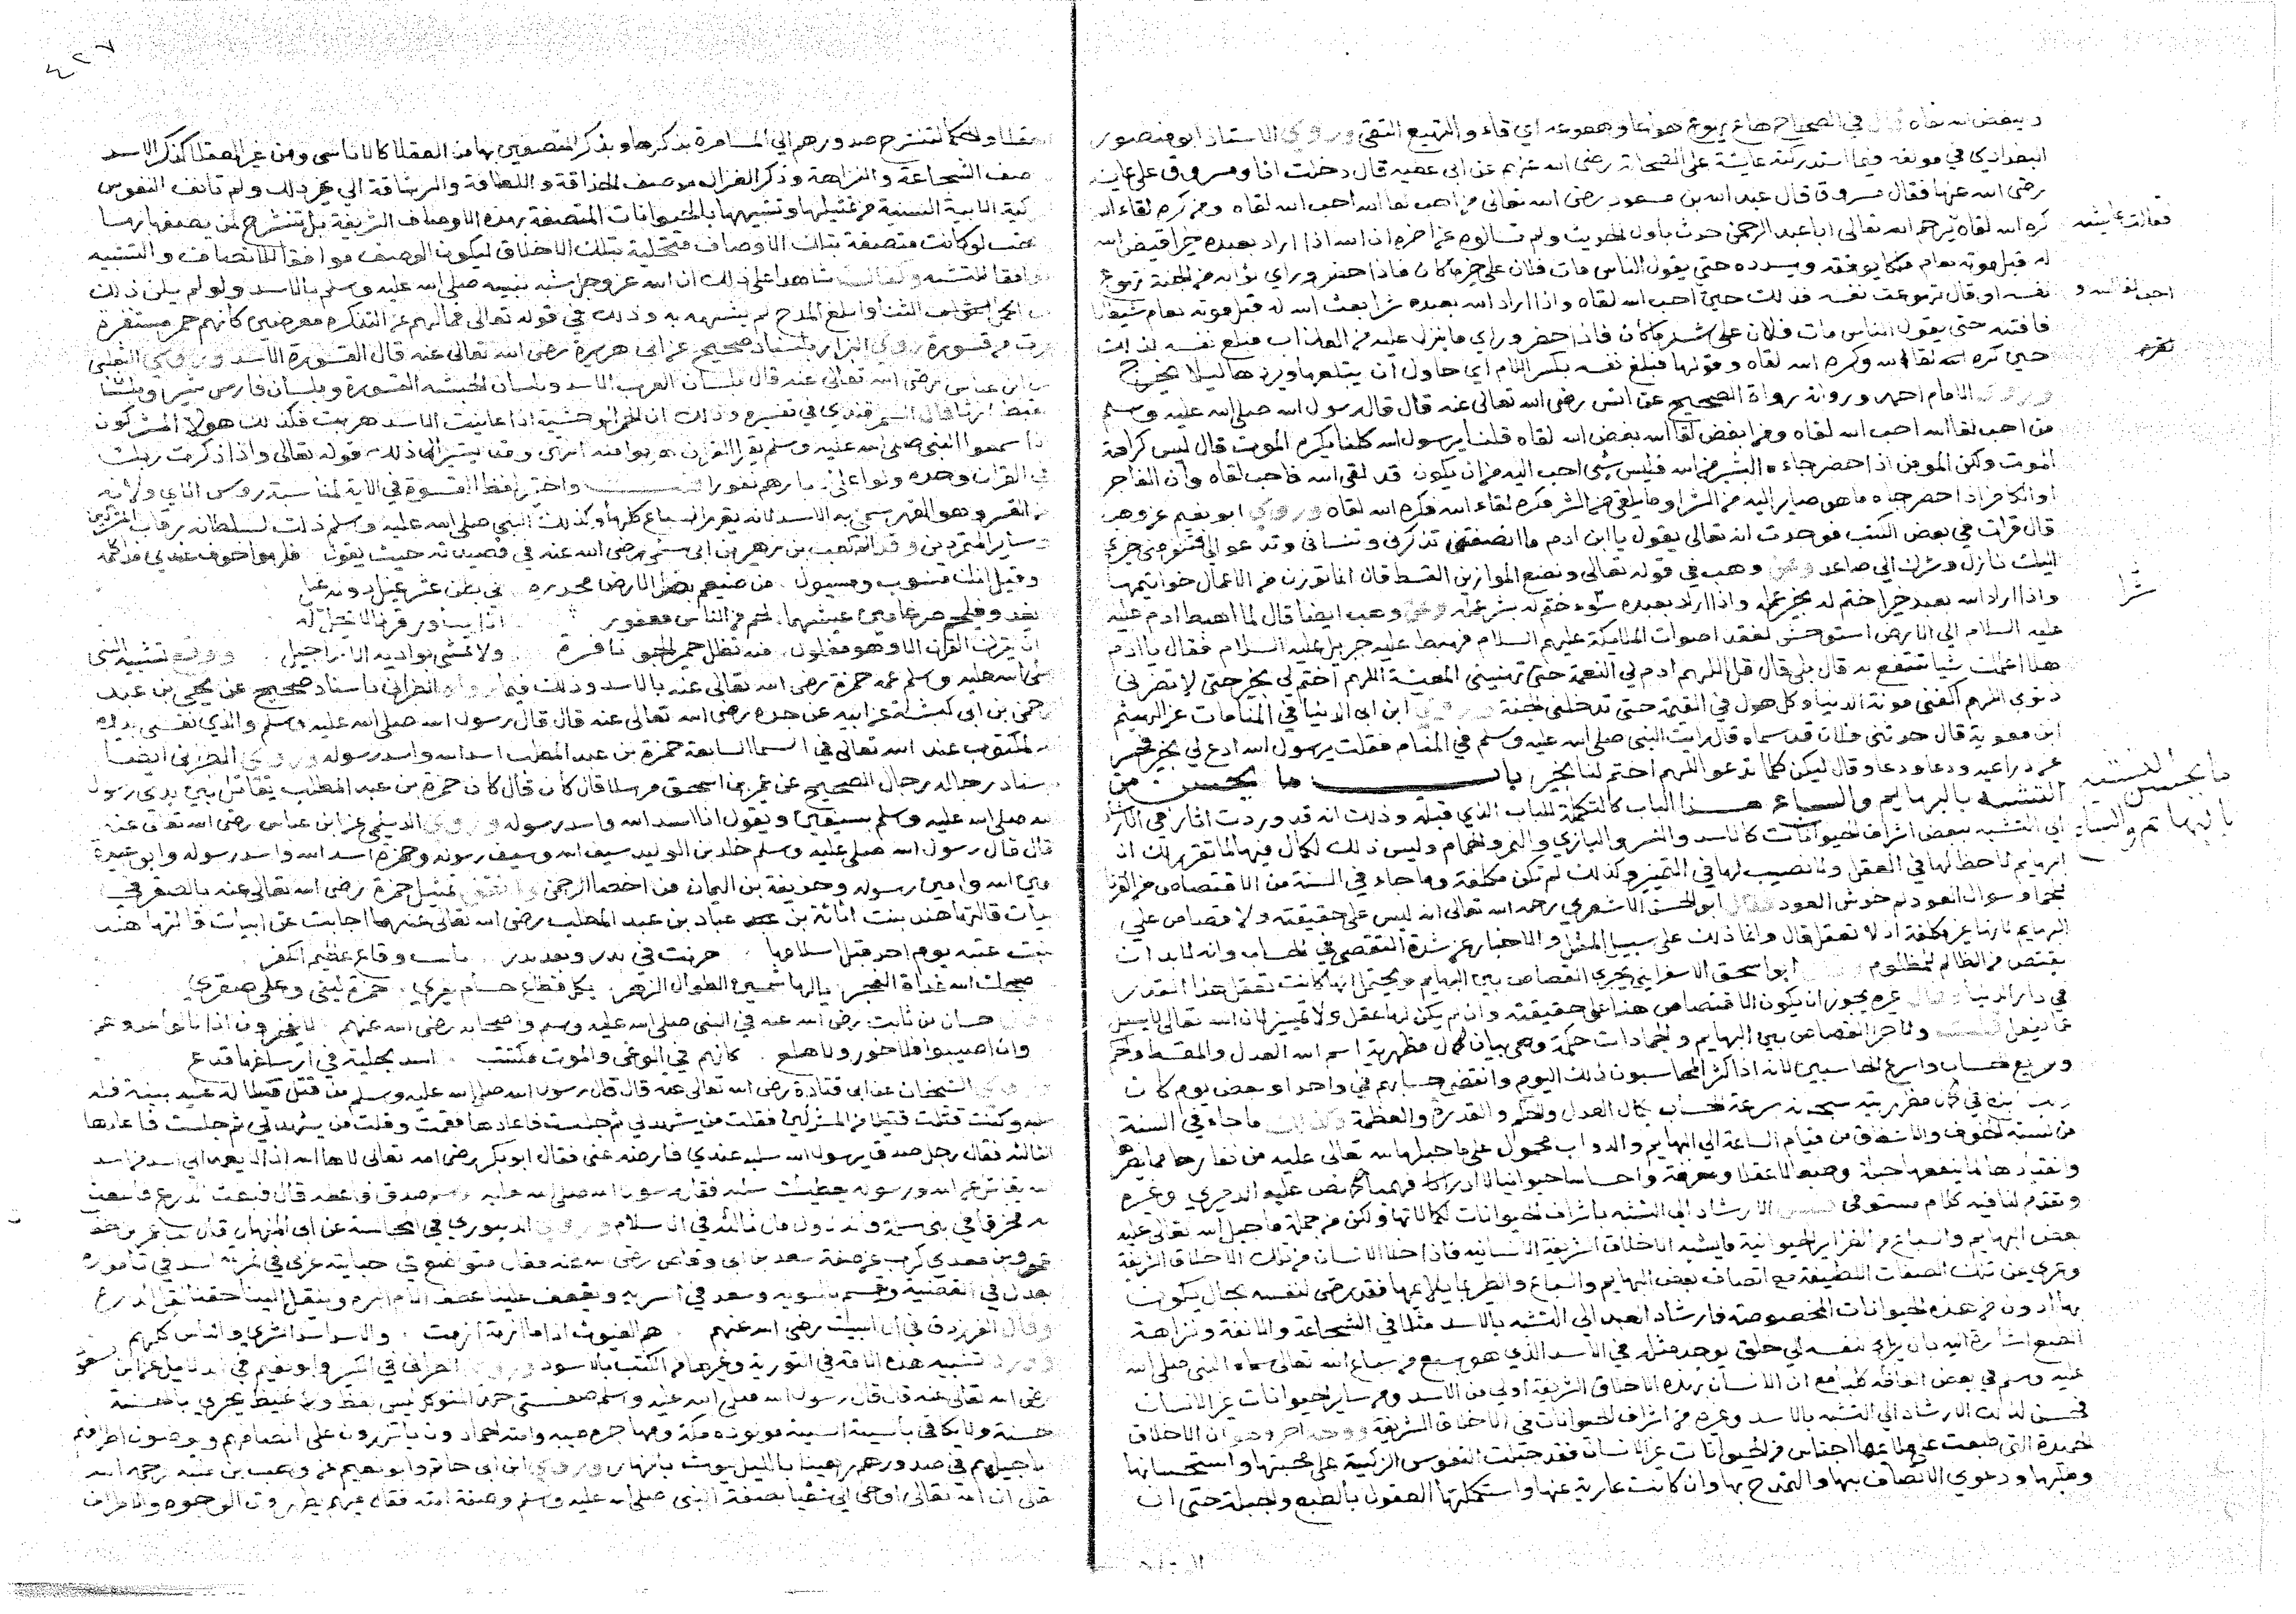 في الصحاح هاع يهوع هواعا وهيعوعه اي قاء والتهيع التقي وروي الاستاذ ابو منصور
البغدادي في مولفه فيما استدركته عايشة على الصحابة رضي الله عنهم عن ابي عطيه قال دخلت انا ومسروق على عايشة
رضي الله عنها فقال مسروق قال عبد الله بن مسعود رضي الله تعالى من احب لقا الله احب الله لقاه ومن كره لقاء الله
فقالت عايشه
كره الله لقاه يرحم الله تعالى ابا عبد الرحمن حدث باول الحديث ولم تسالوه عن اخره ان الله اذا اراد بعبده خيرا قيض الله
له قبل موته بعام ملكا يوفقه ويسدده حتى يقول الناس مات فلان على خير ما كان فاذا حضر وراي ثوابه من الجنة تهوع
نفسه او قال تهوعت نفسه فذلك حين احب الله لقاه واذا اراد الله بعبده شرا بعث الله له قبل موته بعام شيطانا
فافتنه حتى يقول الناس مات فلان على شر ما كان فاذا حضر وراي ما ينزل عليه من العذاب فبلع نفسه فذلك
حين كره لقا الله وكره الله لقاه وقولها فبلع نفسه بكسر اللام اي حاول ان يبتلعها ويردها ليلا يخرج
وروي الامام احمد ورواته رواة الصحيح عن انس رضي الله تعالى عنه قال قال رسول الله صلى الله عليه وسلم
من احب لقا الله احب الله لقاه ومن ابغض لقا الله بغض الله لقاه قلنا يرسول الله كلنا يكره الموت قال ليس كراهة
الموت ولكن المومن اذا حضر جاءه البشير من الله فليس شي احب اليه من ان يكون قد لقي الله فاحب لقاه وان الفاجر
او الكافر اذا حضر جاه ما هو صاير اليه من الشر او ما يلقى من الشر فكره لقاء الله فكره الله لقاه وروي ابو نعيم عن وهب
قال قرات في بعض الكتب فوجدت الله تعالى يقول يا ابن ادم ما انصفتني تذكرني وتنساني وتدعو الي فتفر مني خيري
اليك نازل وشرك الي صاعد وعن وهب في قوله تعالى ونضع الموازين القسط قال انما توزن من الاعمال خواتيمها
واذا اراد الله بعبد خيرا ختم له بخير عمله واذا اراد بعبده سوء ختم له بشر عمله وعن وهب ايضا قال لما اهبط ادم عليه
عليه السلام الى الارض استوحش لفقد اصوات الملائكة عليهم السلام فهبط عليه جبريل عليه السلام فقال يا ادم
هلا اعلمك شيا تنتفع به قال بلى قال قل اللهم ادم لي النعمة حتى تهنيني المعيشة اللهم اختم لي بخير حتى لا تضرني
ذنوبي اللهم اكفني مونة الدنيا وكل هول في القيمة حتى تدخلني الجنة وروي ابن ابي الدنيا في المنامات عن الهيثم
ابن معوية قال حدثني فلان قد سماه قال رايت النبي صلى الله عليه وسلم في المنام فقلت يرسول الله ادع لي بخير
ودعا ودعا وقال ليكن كلما تدعو اللهم اختم لنا بخير باب ما يحسن من
ما يحسن التشبه
بالبهايم والسباع
التشبه بالبهايم والسباع هذا الباب كالتكملة للباب الذي قبله وذلك انه قد وردت اثار في الارشاد
الى التشبه ببعض اشراف الحيوانات كالاسد والنسر والبازي والنمر والحمام وليس ذلك لكمال فيها لما تقرر لك ان
البهايم لاحظ لها في العقل ولا نصيب لها في التميز وكذلك لم تكن مكلفة وما جاء في السنة من الاقتصاص من القرنا
للجما وسوال العود لم خدش العود فقال ابو الحسن الاشعري رحمه الله تعالى انه ليس على حقيقته ولا قصاص على
البهايم لانها غير مكلفة اذ لا تعقل قال وانما ذلك على سبيل المثل والاخبار عن شدة التقصي في الحساب وانه لابد ان
يقتص من الظالم للمظلوم ابو اسحق الاسفرايني يجري القصاص بين البهايم ويحتمل انها كانت تعقل هذا القدر
في دار الدنيا وقال غيره يجوز ان يكون الاقتصاص هنا على حقيقته وان لم يكن لها عقل ولا تمييز لان الله تعالى لا يسيل
عما يفعل ولاجرا القصاص بين البهايم والجمادات حكمة وهي بيان كمال مظهرية اسم الله العدل والمقسط والحكم
وسريع الحساب واسرع الحاسبين لانه اذا كثر المحاسبون ذلك اليوم وانقضى حسابهم في واحد او بعض يوم كان
سبحانه سرعة الحساب كمال العدل والحكم والقدرة والعظمة ما جاء في السنة
من نسبة الخوف والاشفاق من قيام الساعة الى البهايم والدواب محمول على ما جبلها الله تعالى عليه من نفارها مما يضرها
وانقيادها لما ينفعها جبلة وطبعا لا عقلا ومعرفة واحساسا حيوانيا لا ادراكا فهميا كما نص عليه الدميري وغيره
وتقدم لنا فيه كلام مستوفى الارشاد الى التشبه باشراف الحيوانات لكمالاتها ولكن من جملة ما جبل الله تعالى عليه
بعض البهايم والسباع من الغرايز الحيوانية ما يشبه الاخلاق الشريفة الانسانيه فاذا خلا الانسان من تلك الاخلاق الشريفة
وعري عن تلك الصفات اللطيفة مع اتصاف بعض البهايم والسباع والطير بما يلايمها فقد رضي لنفسه بحال يكون
بها ادون من هذه الحيوانات المخصوصة فارشاد العبد الى التشبه بالاسد مثلا في الشجاعة والانفة ونزاهة
الطبع اشارة اليه بان يربا بنفسه الى خلق يوجد مثله في الاسد الذي هو سبع من سباع الله تعالى سماه النبي صلى الله
عليه وسلم في بعض الفاظه كلبا مع ان الانسان بهذه الاخلاق الشريفة اولى من الاسد ومن ساير الحيوانات غير الانسان
فحسن لذلك الارشاد الى التشبه بالاسد وغيره من اشراف الحيوانات في الاخلاق الشريفة ووجه اخر وهو ان الاخلاق
الحميدة التي طبعت عليها اجناس من الحيوانات غير الانسان فقد جبلت النفوس الزكية على محبتها واستحسانها
وطلبها ودعوي الاتصاف بها والتمدح بها وان كانت عارية عنها واستكملتها العقول بالطبع والجبلة حتى ان
٤٢٧
العقلا والحكما لتنشرح صدورهم الى المسامرة بذكرها وبذكر المتصفين بها من العقلا كالاناسي ومن غير العقلا كذكر الاسد
وصف الشجاعة والنزاهة وذكر الغزال بوصف الحذاقة واللطافة والرشاقة الى غير ذلك ولم تانف النفوس
الزكية الابية السنية من تمثيلها وتشبيهها بالحيوانات المتصفة بهذه الاوصاف الشريفة بل تنشرح لمن يصفها بها
لو كانت متصفة بتلك الاوصاف متحلية بتلك الاخلاق ليكون الوصف موافقا للاتصاف والتشبيه
موافقا للتشبه شاهدا على ذلك ان الله عز وجل شبه نبيه صلى الله عليه وسلم بالاسد ولو لم يكن ذلك
الثنا وابلغ المدح لم يشبهه به وذلك في قوله تعالى فما لهم عن التذكرة معرضين كانهم حمر مستنفرة
فرت من قسورة روي البزار باسناد صحيح عن ابي هريرة رضي الله تعالى عنه قال القسورة الاسد وروي الثعلبي
عن ابن عباس رضي الله تعالى عنه قال بلسان العرب الاسد وبلسان الحبشه القسورة وبلسان فارس شير وبلسان
القبط اريا قال السمرقندي في تفسيره وذلك ان الحمر الوحشية اذا عاينت الاسد هربت فكذلك هولا المشركون
اذا سمعوا النبي صلى الله عليه وسلم يقرا القران هربوا منه انتهى ومما يشير الى ذلك قوله تعالى واذا ذكرت ربك
في القران وحده ولوا على ادبارهم نفورا واختير لفظ القسورة في الاية لمناسبة روس الاي ولانه
من القسر وهو القهر سمي به الاسد لانه يقهر السباع كلها وكذلك النبي صلى الله عليه وسلم ذلت لسلطانه رقاب المشركين
وساير المتمردين وقد اتى كعب بن زهير بن ابي سلمى رضي الله عنه في قصيدته حيث يقول فلهو اخوف عندي اذ اكلمه
وقيل انك منسوب ومسيول من ضيغم بضرا الارض مخدره في بطن عثر غيل دونه غيل
يغدو فيلحم ضرغامين عيشهما لحم من الناس معفور اذا يساور قرنا لا يحل له
ان يترك القرن الا وهو مفلول منه تظل حمير الجو نافرة ولا تمشى بواديه الاراجيل ووقع تشبيه النبي
صلى الله عليه وسلم عمه حمزة رضي الله تعالى عنه بالاسد وذلك فيما رواه الطبراني باسناد صحيح عن يحيى بن عبد
الرحمن بن ابي لبيبة عن ابيه عن جده رضي الله تعالى عنه قال قال رسول الله صلى الله عليه وسلم والذي نفسي بيده
انه لمكتوب عند الله تعالى في السما السابعة حمزة بن عبد المطلب اسد الله واسد رسوله وروي الطبراني ايضا
باسناد رجاله رجال الصحيح عن عمير بن اسحق مرسلا قال كان حمزة بن عبد المطلب يقاتل بين يدي رسول
الله صلى الله عليه وسلم بسيفين ويقول انا اسد الله واسد رسوله وروي الديلمي عن ابن عباس رضي الله تعالى عنه
قال قال رسول الله صلى الله عليه وسلم خلد بن الوليد سيف الله وسيف رسوله وحمزة اسد الله واسد رسوله وابو عبيدة
امين الله وامين رسوله وحذيفة بن اليمان من اصفيا الرحمن تمثيل حمزة رضي الله تعالى عنه بالصقر في
ابيات قالتها هند بنت اثاثة بن عباد بن عبد المطلب رضي الله تعالى عنها اجابت عن ابيات قالتها هند
بنت عتبه يوم احد قبل اسلامها خزيت في بدر وبعد بدر يا بنت وقاع عظيم الكفر
صبحك الله غداة الفجر بالهاشميين الطوال الزهر بكل قطاع حسام يفري حمزة ليثي وعلي صقري
حسان بن ثابت رضي الله عنه في النبي صلى الله عليه وسلم واصحابه رضي الله عنهم لا يفخرون اذا نالوا عدوهم
وان اصيبوا فلا خور ولا هلع كانهم في الوغى والموت مكتنب اسد بحلية في ارساغها فدع
الشيخان عن ابي قتادة رضي الله تعالى عنه قال قال رسول الله صلى الله عليه وسلم من قتل قتيلا له عليه بينة فله
سلبه وكنت قتلت قتيلا من المشركين فقلت من يشهد لي ثم جلست فاعادها فقمت وقلت من يشهد لي ثم جلست فاعادها
الثالثة فقال رجل صدق يرسول الله سلبه عندي فارضه عني فقال ابو بكر رضي الله تعالى لاها الله اذا لا يعمد الى اسد من اسد
الله يقاتل عن الله ورسوله يعطيك سلبه فقال رسول الله صلى الله عليه وسلم صدق فاعطه قال فبعت الدرع فابتعت
به مخرفا في بني سلمة وانه لاول مال تاثلته في الاسلام وروي الدينوري في المجالسة عن ابي المنهال قال سال عمر بن الخطاب
عمرو بن معدي كرب عن صفة سعد بن ابي وقاص رضي الله عنه فقال متواضع في حبايته عربي في نمرته اسد في تاموره
يعدل في القضية ويقسم بالسوية وسعد في السرية ويعطف علينا عطف الام البرة وينقل الينا حقنا نقل الذرة
وقال الفرزدق هم الغيوث اذا ما ازمة ازمت والاسد اسد الشري والناس كلهم
تشبيه هذه الامة في التورية وغيرها من الكتب بالاسود وروي الطبراني في الكبير وابو نعيم في الدلايل عن ابن مسعود
رضي الله تعالى عنه قال قال رسول الله صلى الله عليه وسلم صفتي احمد المتوكل ليس بفظ ولا غليظ يجزي بالحسنة
حسنة ولا يكافي بالسيئة السيئة مولده مكة ومهاجره طيبه وامته الحمادون ياتزرون على انصافهم ويوضون اطرافهم
اناجيلهم في صدورهم رهبان بالليل ليوث بالنهار وروي ابن ابي حاتم وابو نعيم عن وهب بن منبه رحمه الله
تعالى ان الله تعالى اوحى الى شعيا بصفة النبي صلى الله عليه وسلم وصفة امته فقال يطهرون الوجوه والاطراف